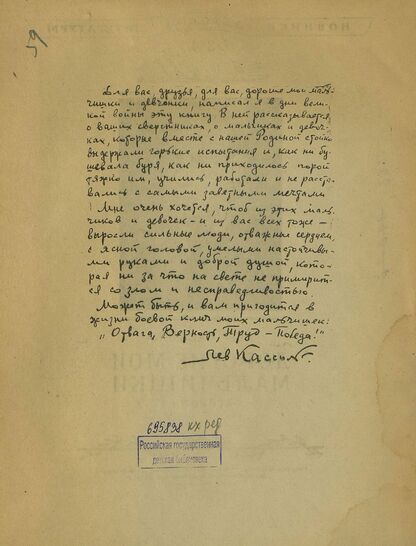 Для вас, друзья, для вас, дорогие мои маль-
чишки и девчонки, написал я в дни вели-
кой войны эту книгу. В ней рассказывается
о ваших сверстниках, о мальчиках и девоч-
ках, которые вместе с нашей Родиной стойко
выдержали горькие испытания и, как ни бу-
шевала буря, как ни приходилось порой
тяжко им, учились, работали и не расста-
вались с самыми заветными мечтами.
Мне очень хочется, чтоб из этих маль-
чиков и девочек – и из вас всех тоже –
выросли сильные люди, отважные сердцем,
с ясной головой, умелыми настойчивы-
ми руками и доброй душой, кото-
рая ни за что на свете не примирит-
ся со злом и несправедливостью.
Может быть, и вам пригодится в
жизни боевой клич моих мальчишек:
„Отвага, Верность, Труд – Победа!"
Лев Кассиль.
695838 кх ред
Российская государственная
детская библиотека